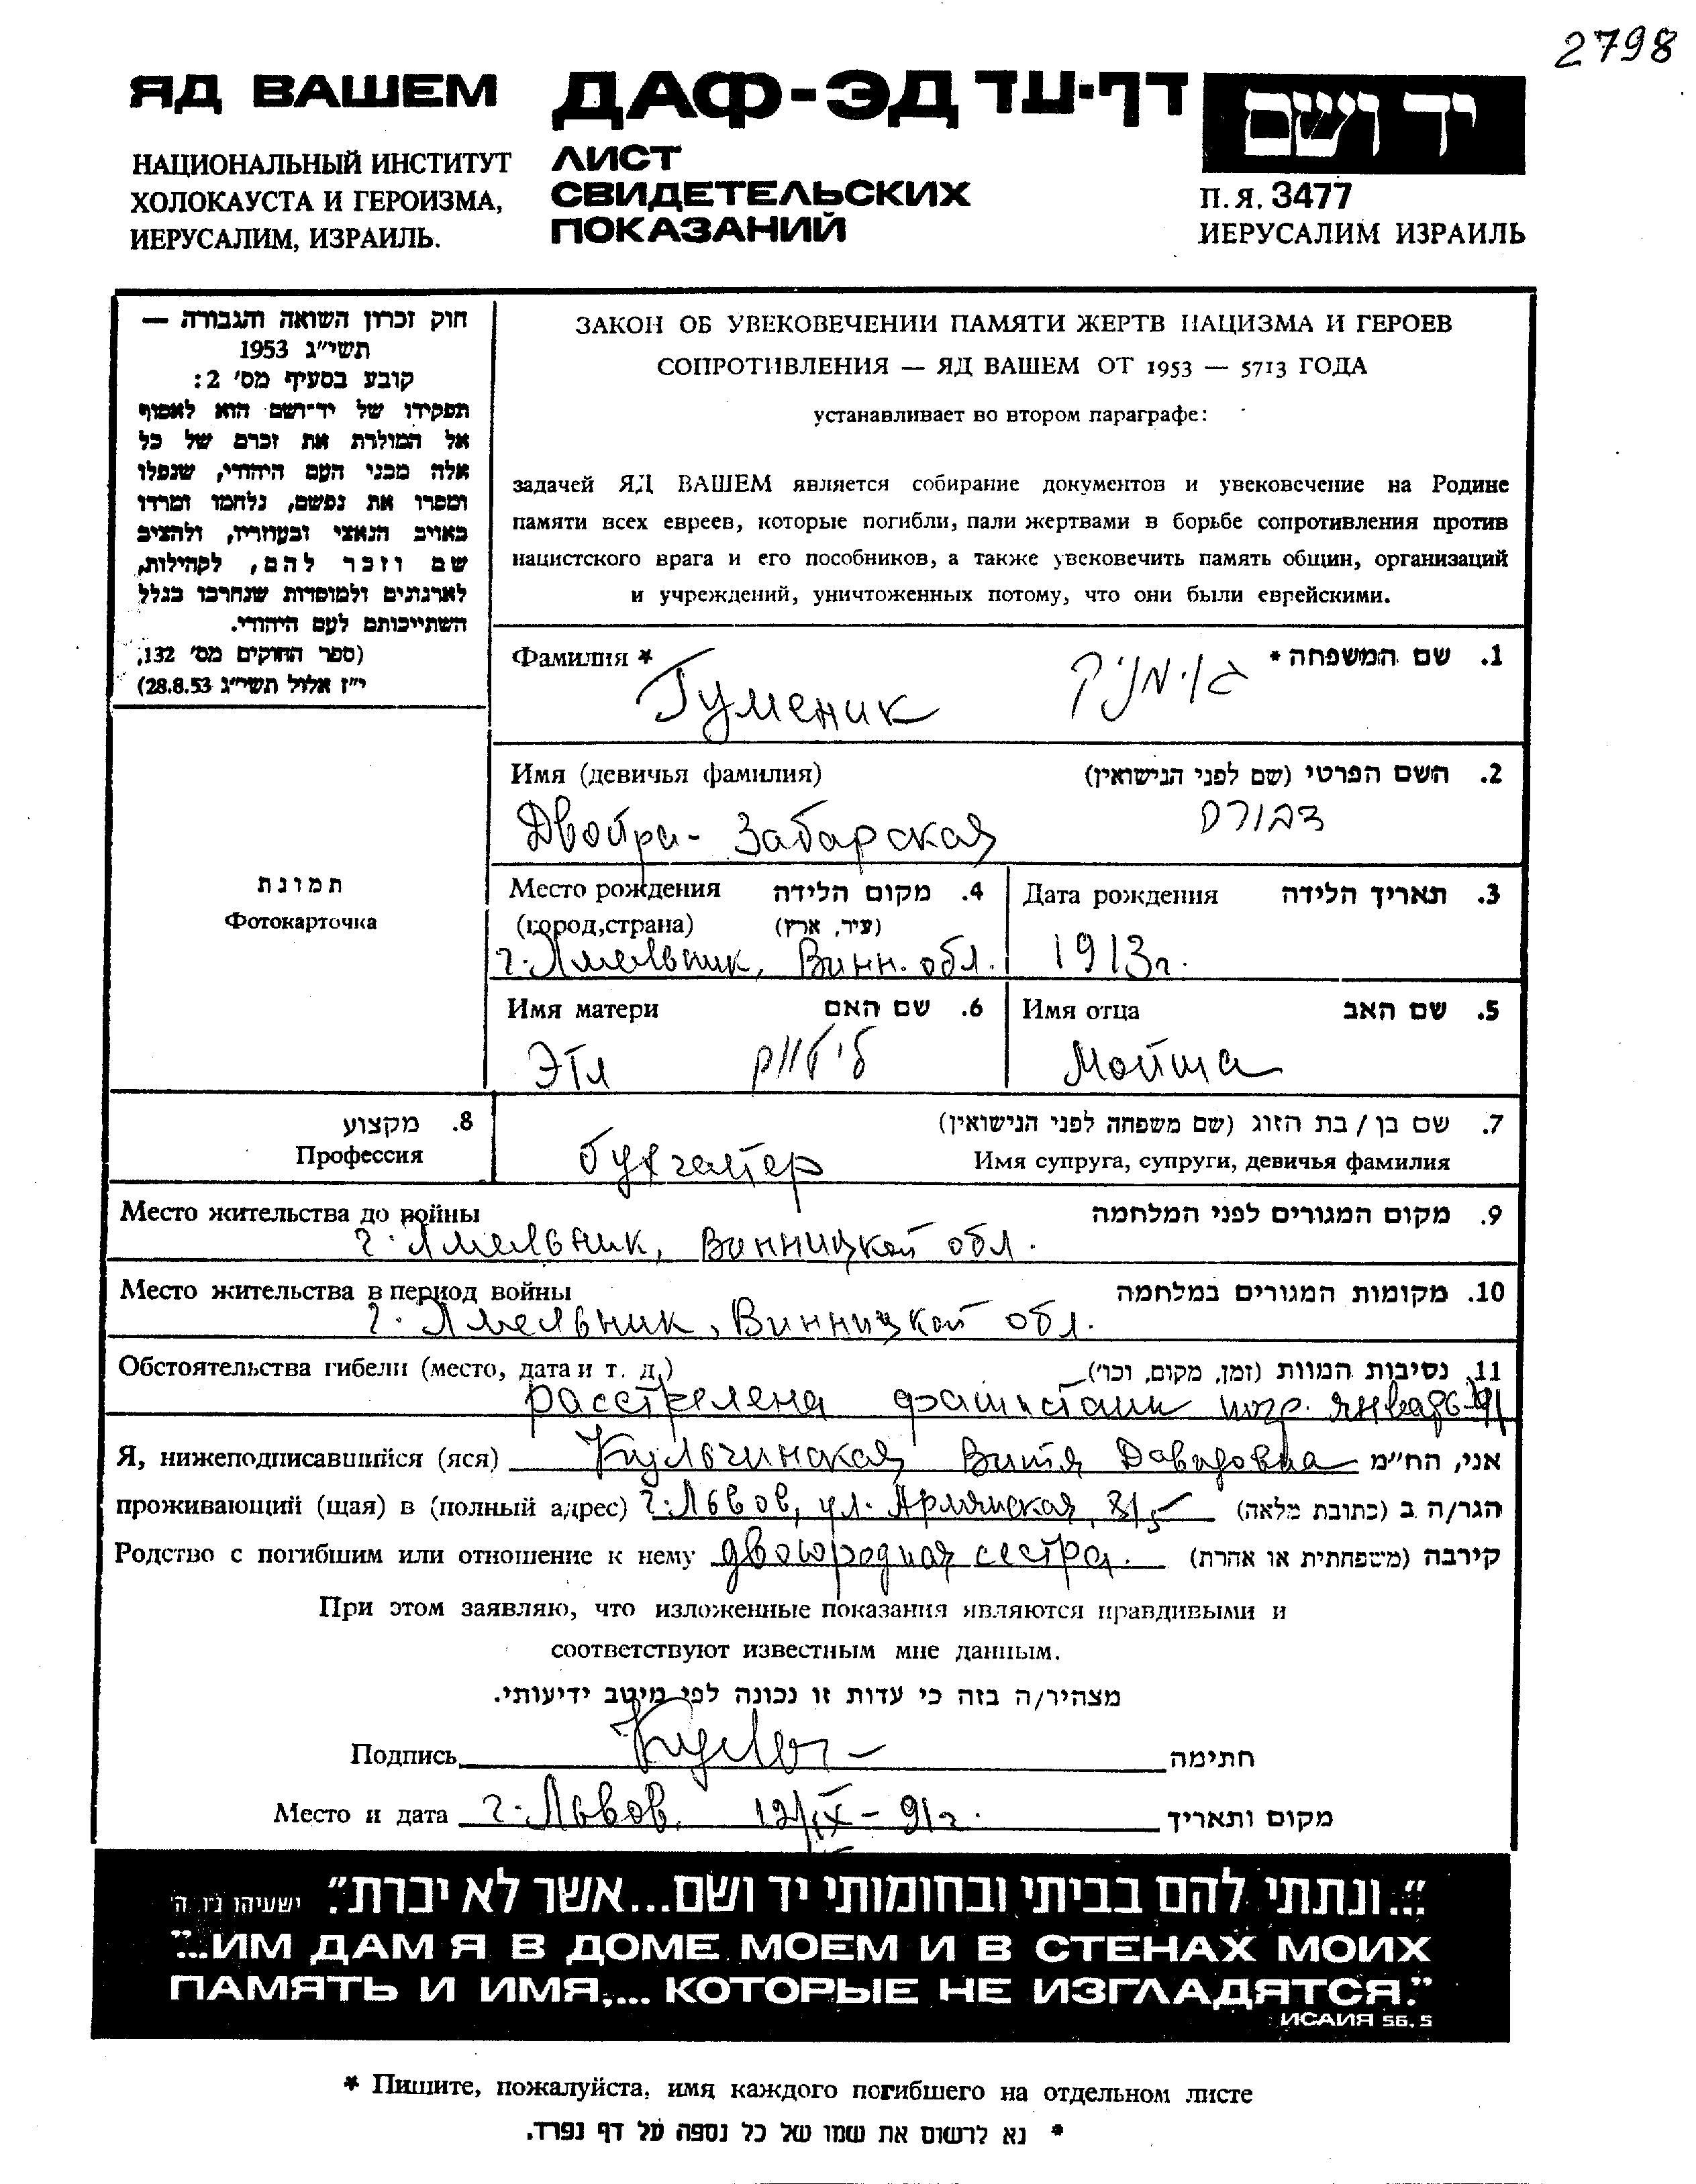 2798
ЯД ВАШЕМ
НАЦИОНАЛЬНЫЙ ИНСТИТУТ
ХОЛОКАУСТА И ГЕРОИЗМА,
ИЕРУСАЛИМ, ИЗРАИЛЬ.
ДАФ-ЭД דף-עד
ЛИСТ
СВИДЕТЕЛЬСКИХ
ПОКАЗАНИЙ
יד ושם
П.Я. 3477
ИЕРУСАЛИМ ИЗРАИЛЬ
חוק זכרון השואה והגבורה —
תשי"ג 1953
קובע בסעיף מס' 2:
תפקידו של יד-ושם הוא לאסוף
אל המולדת את זכרם של כל
אלה מבני העם היהודי, שנפלו
ומסרו את נפשם, נלחמו ומרדו
באויב הנאצי ובעוזריו, ולהציב
שם וזכר להם, לקהילות,
לארגונים ולמוסדות שנחרבו בגלל
השתייכותם לעם היהודי.
(ספר החוקים מס' 132,
י"ז אלול תשי"ג 28.8.53)
ЗАКОН ОБ УВЕКОВЕЧЕНИИ ПАМЯТИ ЖЕРТВ НАЦИЗМА И ГЕРОЕВ
СОПРОТИВЛЕНИЯ — ЯД ВАШЕМ ОТ 1953 — 5713 ГОДА
устанавливает во втором параграфе:
задачей ЯД ВАШЕМ является собирание документов и увековечение на Родине
памяти всех евреев, которые погибли, пали жертвами в борьбе сопротивления против
нацистского врага и его пособников, а также увековечить память общин, организаций
и учреждений, уничтоженных потому, что они были еврейскими.
Фамилия * 1. שם המשפחה *
Гуменик גוימניק
Имя (девичья фамилия) 2. השם הפרטי (שם לפני הנישואין)
Двойра - Забарская
תמונת
Фотокарточка
Место рождения 4. מקום הלידה
(город,страна) (עיר, ארץ)
г. Хмельник, Винн. обл.
Дата рождения 3. תאריך הלידה
1913г.
Имя матери 6. שם האם
Этл
Имя отца 5. שם האב
Мойша
8. מקצוע
Профессия
7. שם בן / בת הזוג (שם משפחה לפני הנישואין)
бухгалтер Имя супруга, супруги, девичья фамилия
Место жительства до войны 9. מקום המגורים לפני המלחמה
г. Хмельник, Винницкой обл.
Место жительства в период войны 10. מקומות המגורים במלחמה
г. Хмельник, Винницкой обл.
Обстоятельства гибели (место, дата и т. д.) 11. נסיבות המוות (זמן, מקום, וכו')
расстрелена фашистами январь
Я, нижеподписавшийся (яся) Кульчинская Витя Давидовна אני, הח"מ
проживающий (щая) в (полный адрес) г. Львов, ул. Армянская, הגר/ה ב (כתובת מלאה)
Родство с погибшим или отношение к нему двоюродная сестра. קירבה (משפחתית או אחרת)
При этом заявляю, что изложенные показания являются правдивыми и
соответствуют известным мне данным.
מצהיר/ה בזה כי עדות זו נכונה לפי מיטב ידיעותי.
Подпись חתימה
Место и дата г. Львов, 12/IX - 91г. מקום ותאריך
"...ונתתי להם בביתי ובחומותי יד ושם...אשר לא יכרת". ישעיהו נו, ה'
"...ИМ ДАМ Я В ДОМЕ МОЕМ И В СТЕНАХ МОИХ
ПАМЯТЬ И ИМЯ,... КОТОРЫЕ НЕ ИЗГЛАДЯТСЯ."
ИСАИЯ 56, 5
* Пишите, пожалуйста, имя каждого погибшего на отдельном листе
* נא לרשום את שמו של כל נספה על דף נפרד.